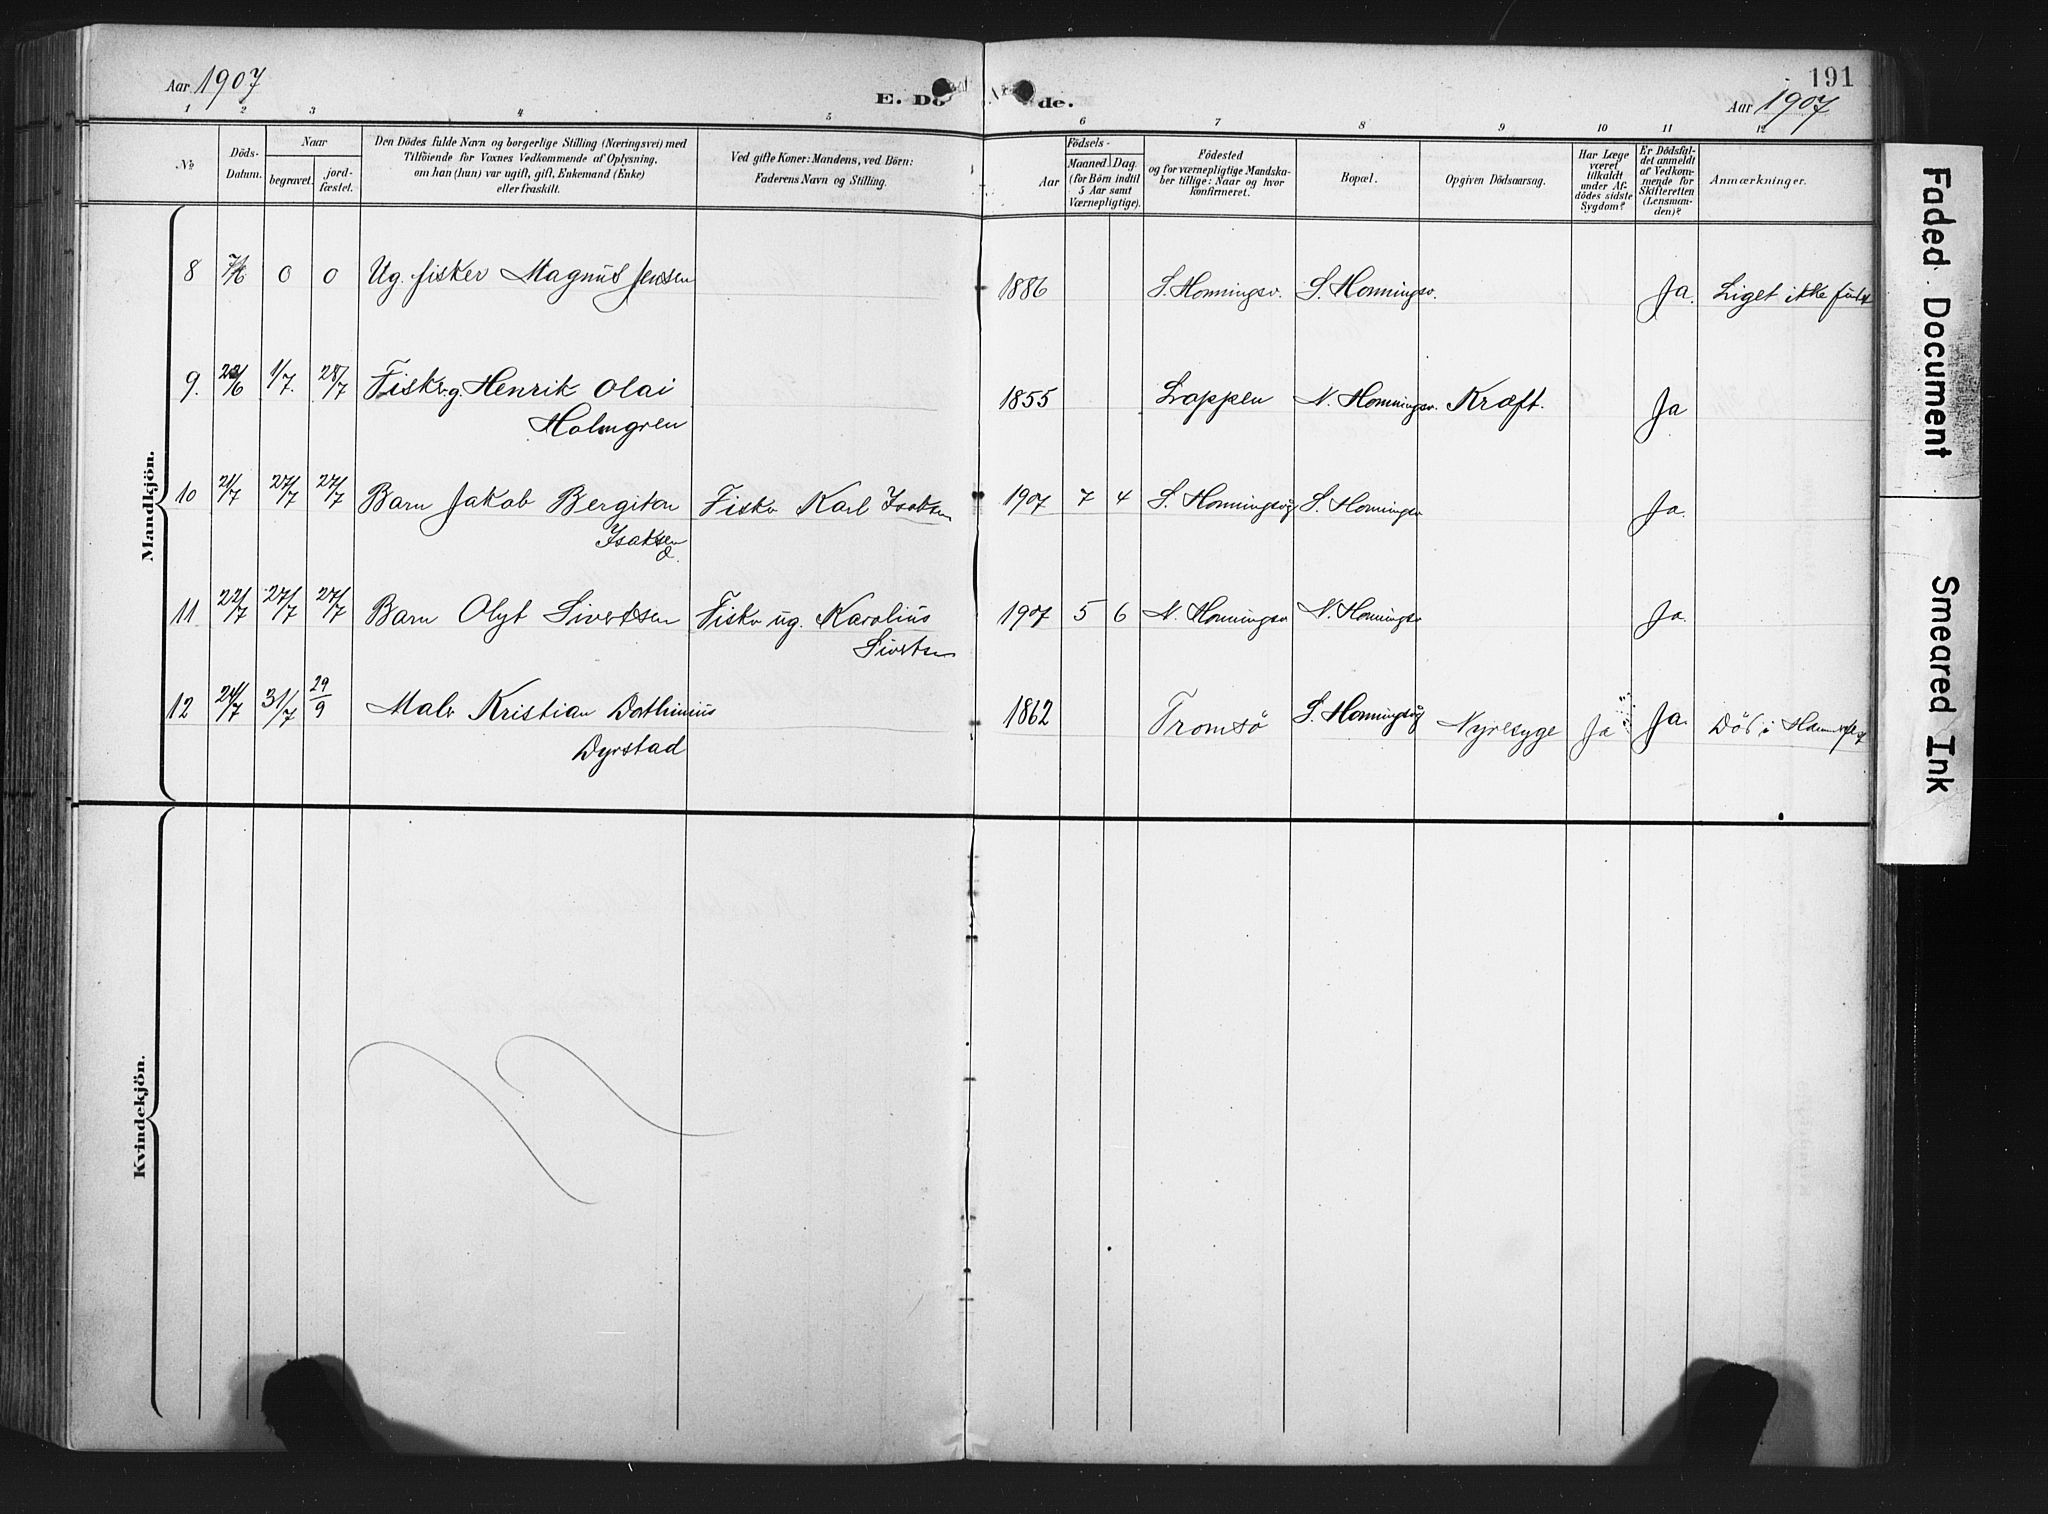 Aar 1907
E. Dö de.
191
Aar 1907
1 2 3 4 5 6 7 8 9 10 11 12
№
Döds-
Datum.
Naar
begravet.
jord-
fæstet.
Den Dödes fulde Navn og borgerlige Stilling (Næringsvei) med
Tilföiende for Voxnes Vedkommende af Oplysning,
om han (hun) var ugift, gift, Enkemand (Enke)
eller fraskilt.
Ved gifte Koner: Mandens, ved Börn:
Faderens Navn og Stilling.
Födsels-
Aar
Maaned. Dag.
(for Börn indtil
5 Aar samt
Værnepligtige).
Födested
og for værnepligtige Mandska-
ber tillige: Naar og hvor
konfirmeret.
Bopæl.
Opgiven Dödsaarsag.
Har Læge
været
tilkaldt
under Af-
dödes sidste
Sygdom?
Er Dödsfal-
det anmeldt
af Vedkom-
mende for
Skifteretten
(Lensman-
den)?
Anmærkninger.
Mandkjön.
8 7/6 0 0 Ug. fisker Magnus Jensen 1886 S. Honningsv. S. Honningsv. Ja. Liget ikke
9. 1/7. 28/7 Fiskr. g. Henrik Olai 1855 Loppen N. Honningsv. Kræft. Ja
Holmgren
10 21/7 27/7 27/7 Barn Jakob Bergiton Fiskr Karl Isaksen 1907 7 4 S. Honningsvg S. Honningsv Ja.
Isaksen
11 22/7 27/7 27/7 Barn Olyt Sivertsen Fiskr ug. Karolius 1907 5 6 N. Honningsv N. Honningsv Ja.
Sivertsen
12 24/7 31/7 29/9 Maler Kristian Dorthinius 1862 Tromsö S. Honningsvg Nyresyge Ja Ja. Död i Hammerfest
Dyrstad
Kvindekjön.
Faded Document
Smeared Ink